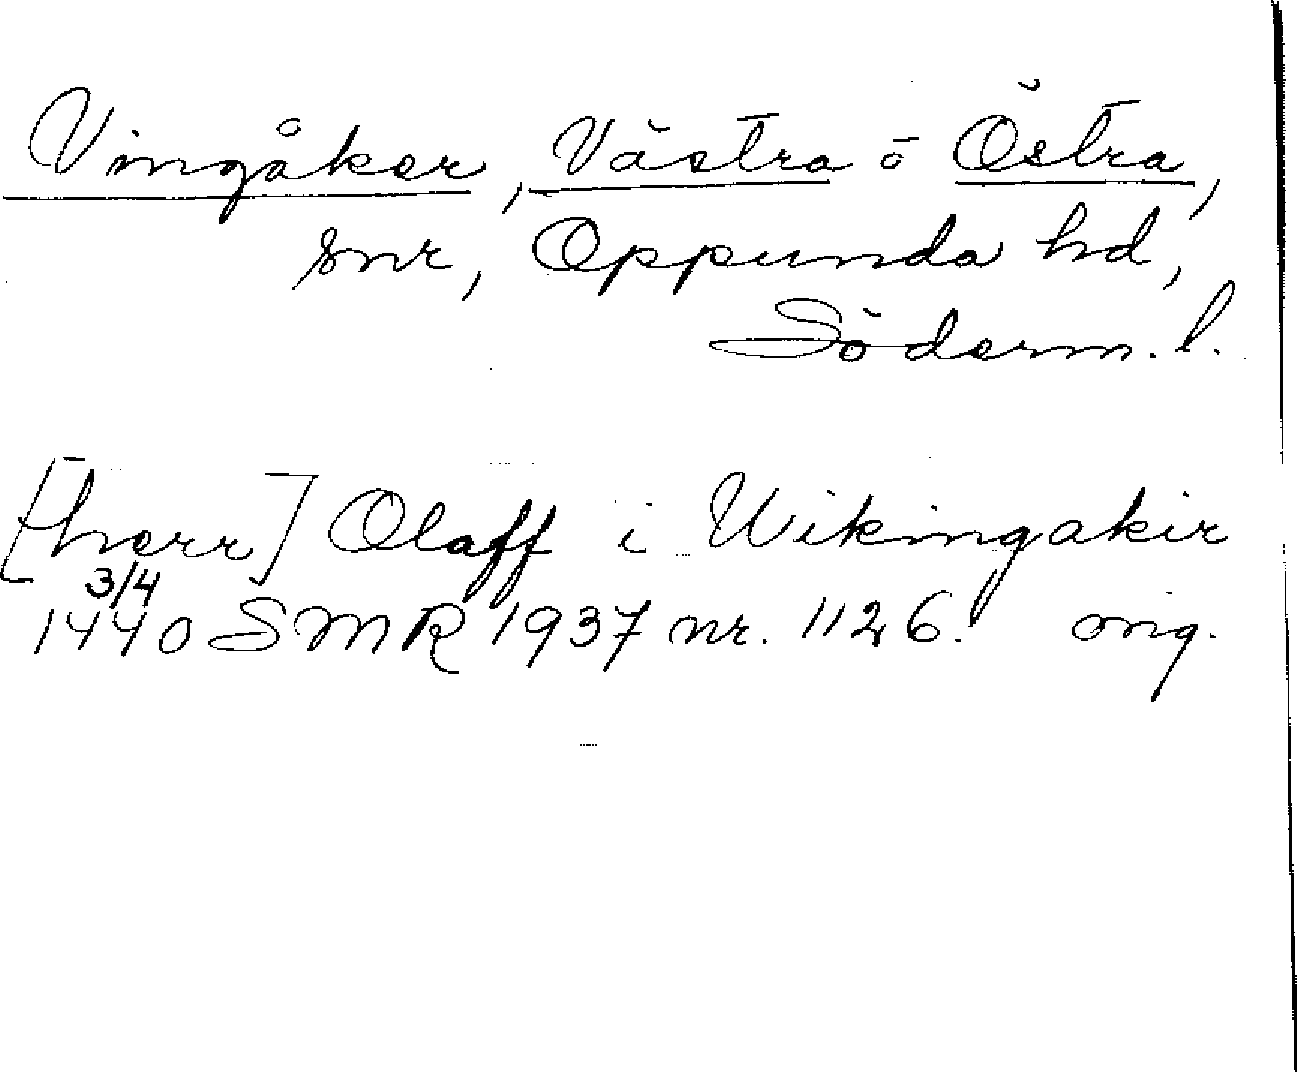 Vingåker, Västra ō Östra,
snr, Oppunda hd,
Söderm. l.
[herr] Olaff i Wikingakir
3/4
1440 SMR 1937 nr. 1126. orig.